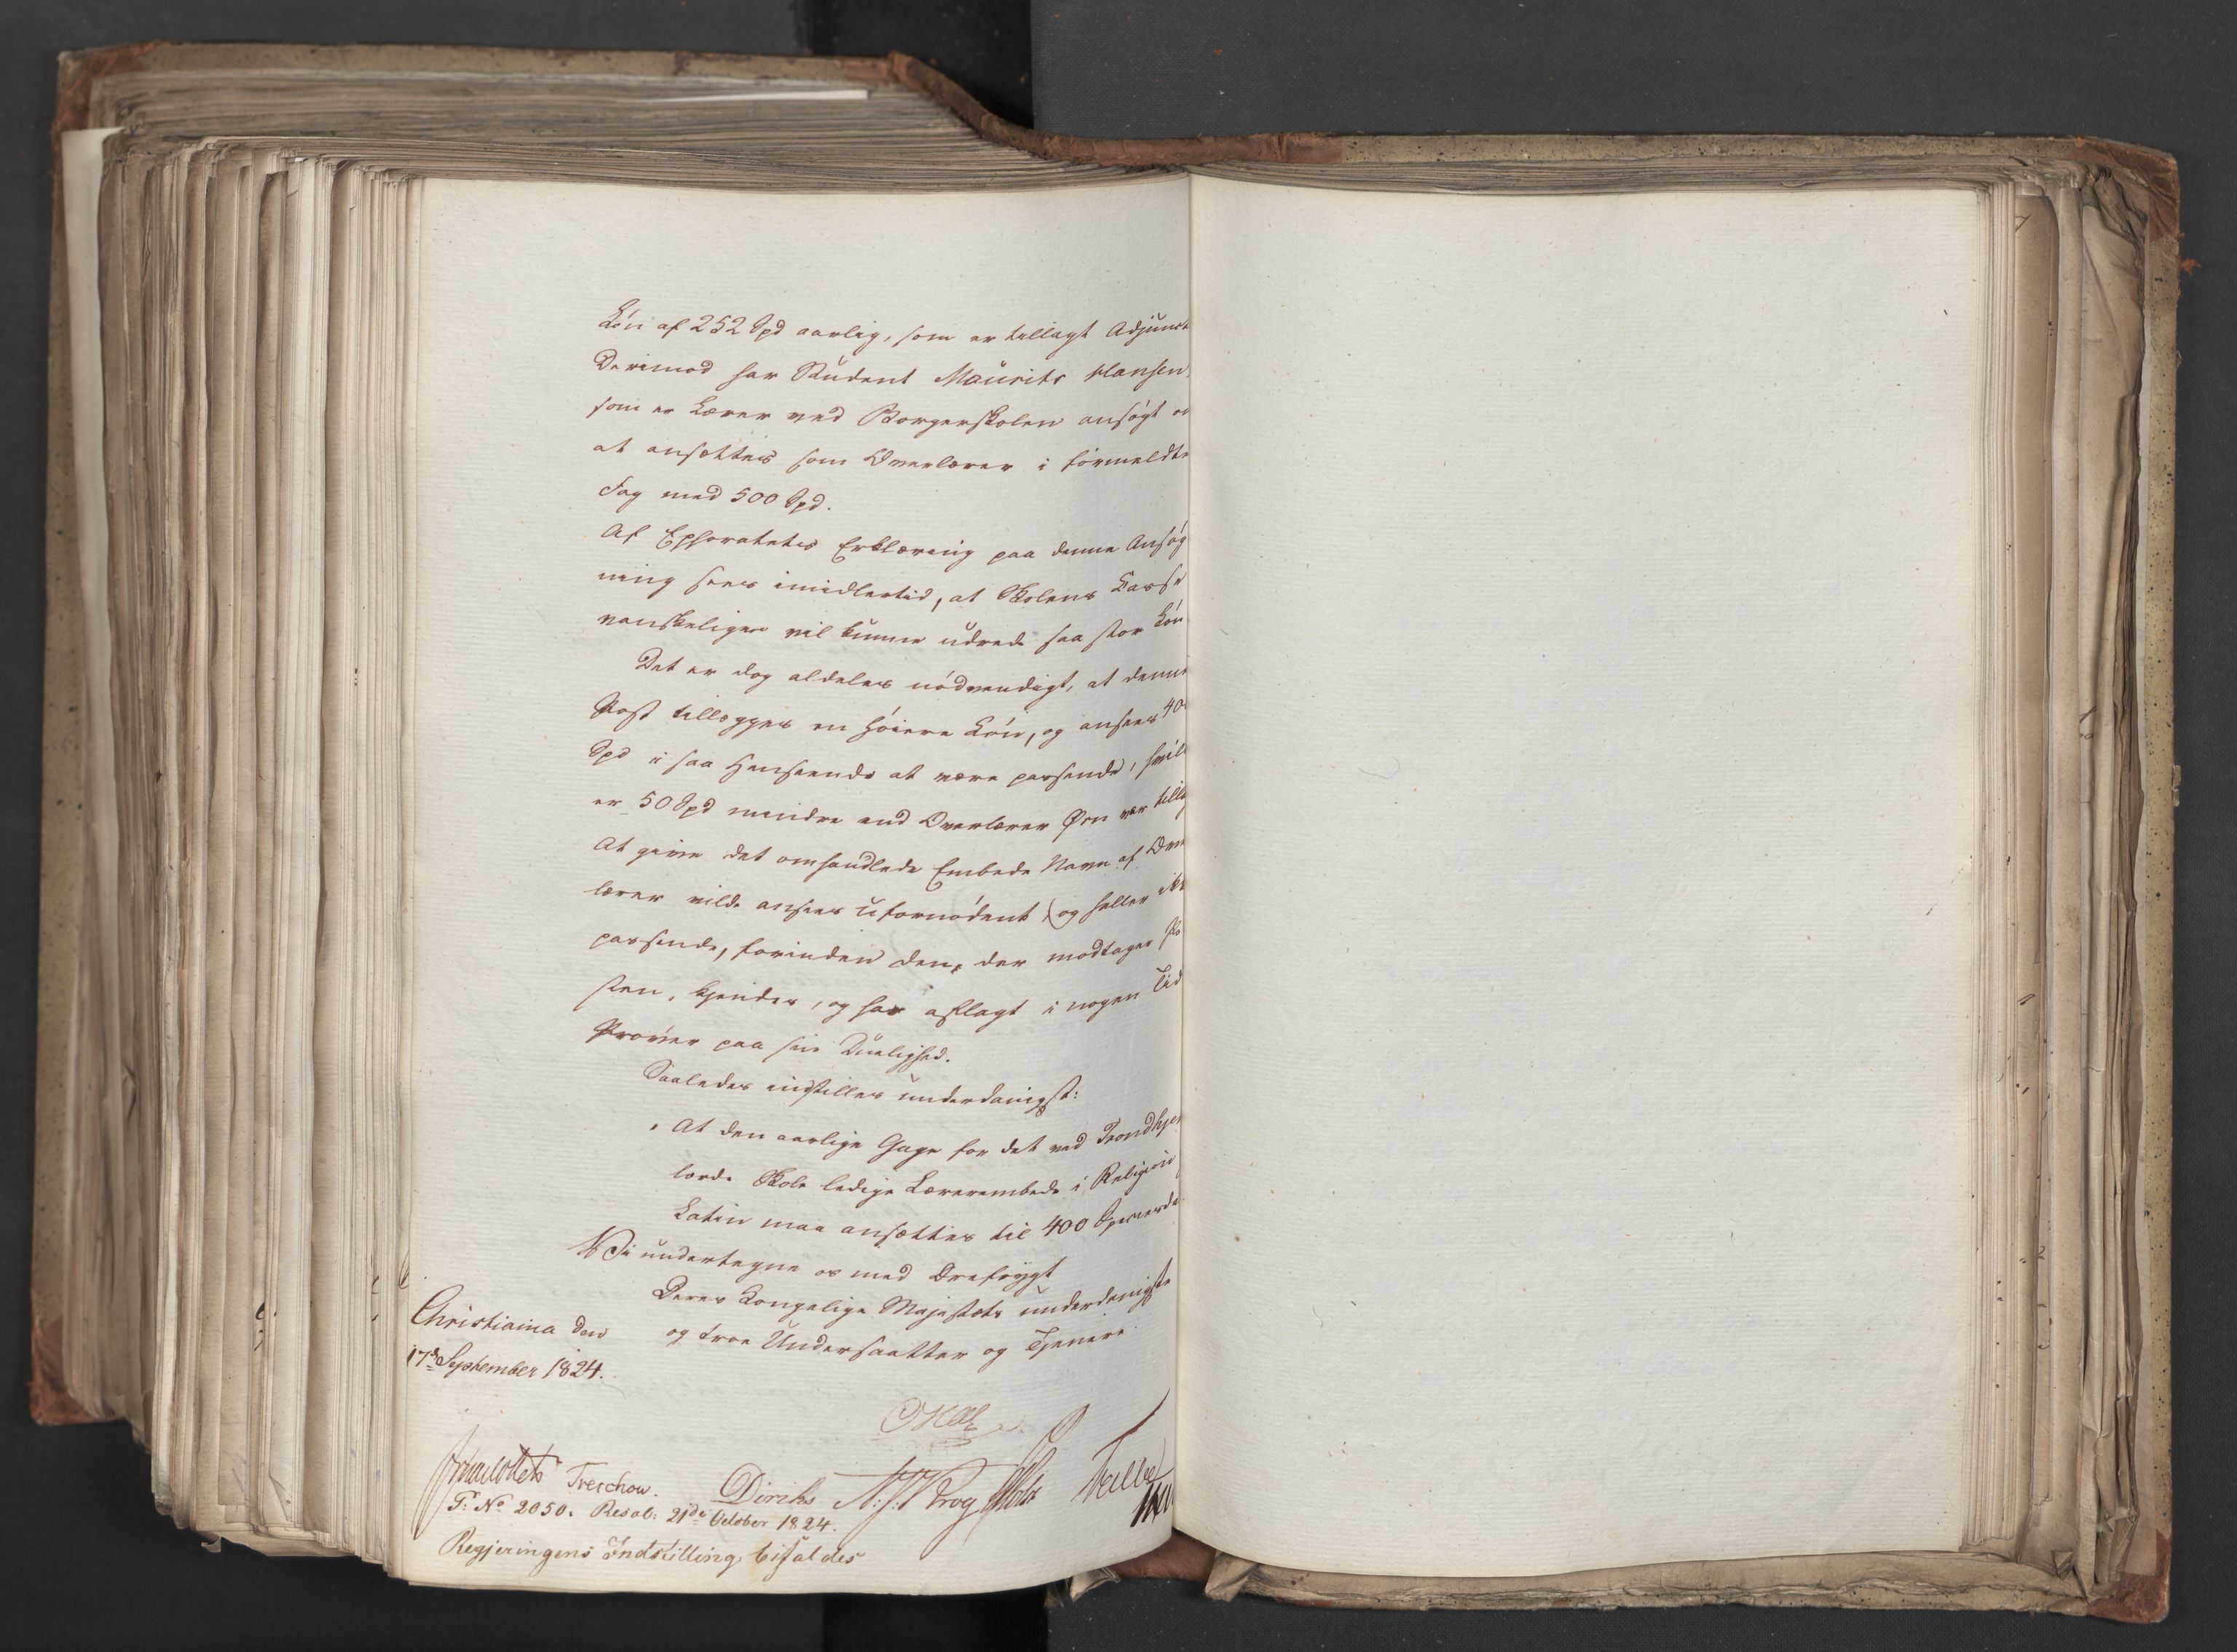 Løn af 252 Spd aarlig, som er tillagt Adjunct
Derimod har Student Maurits Hansen
som er Lærer ved Borgerskolen ansøgt o
at ansættes som Overlærer i formeldte
Fag med 500 Spd.
Af Ephoratets Erklæring paa denne Ansøg
ning sees imidlertid, at Skolens Casse
vanskeligen vil kunne udrede saa stor Løn
Det er dog aldeles nødvendigt, at denne
Post tillægges en høiere Løn, og ansees 40
Spd i saa Henseende at være passende, hvil
er 50 Spd mindre end Overlærer Ørn var tilla
At give det omhandlede Embede Navn af Over
lærer vilde ansees ufornødent (og heller ikke
passende, forinden den, der modtager Po
sten, kjendes, og har aflagt i nogen Tid
Prøver paa sin Duelighed.
Saaledes indstilles underdanigst:
At den aarlige Gage for det ved Trondhje
lærde Skole ledige Lærerembede i Religion
Latin maa ansættes til 400 Speciesda
Vi undertegne os med Ærefrygt
Deres Kongelige Majestæts underdanigste
og troe Undersaatter og Tjenere
Christiania den
17de September 1824.
Treschow. Diriks Krog
P: No 2050. Resol: 21de October 1824.
Regjeringens Indstilling bifaldes